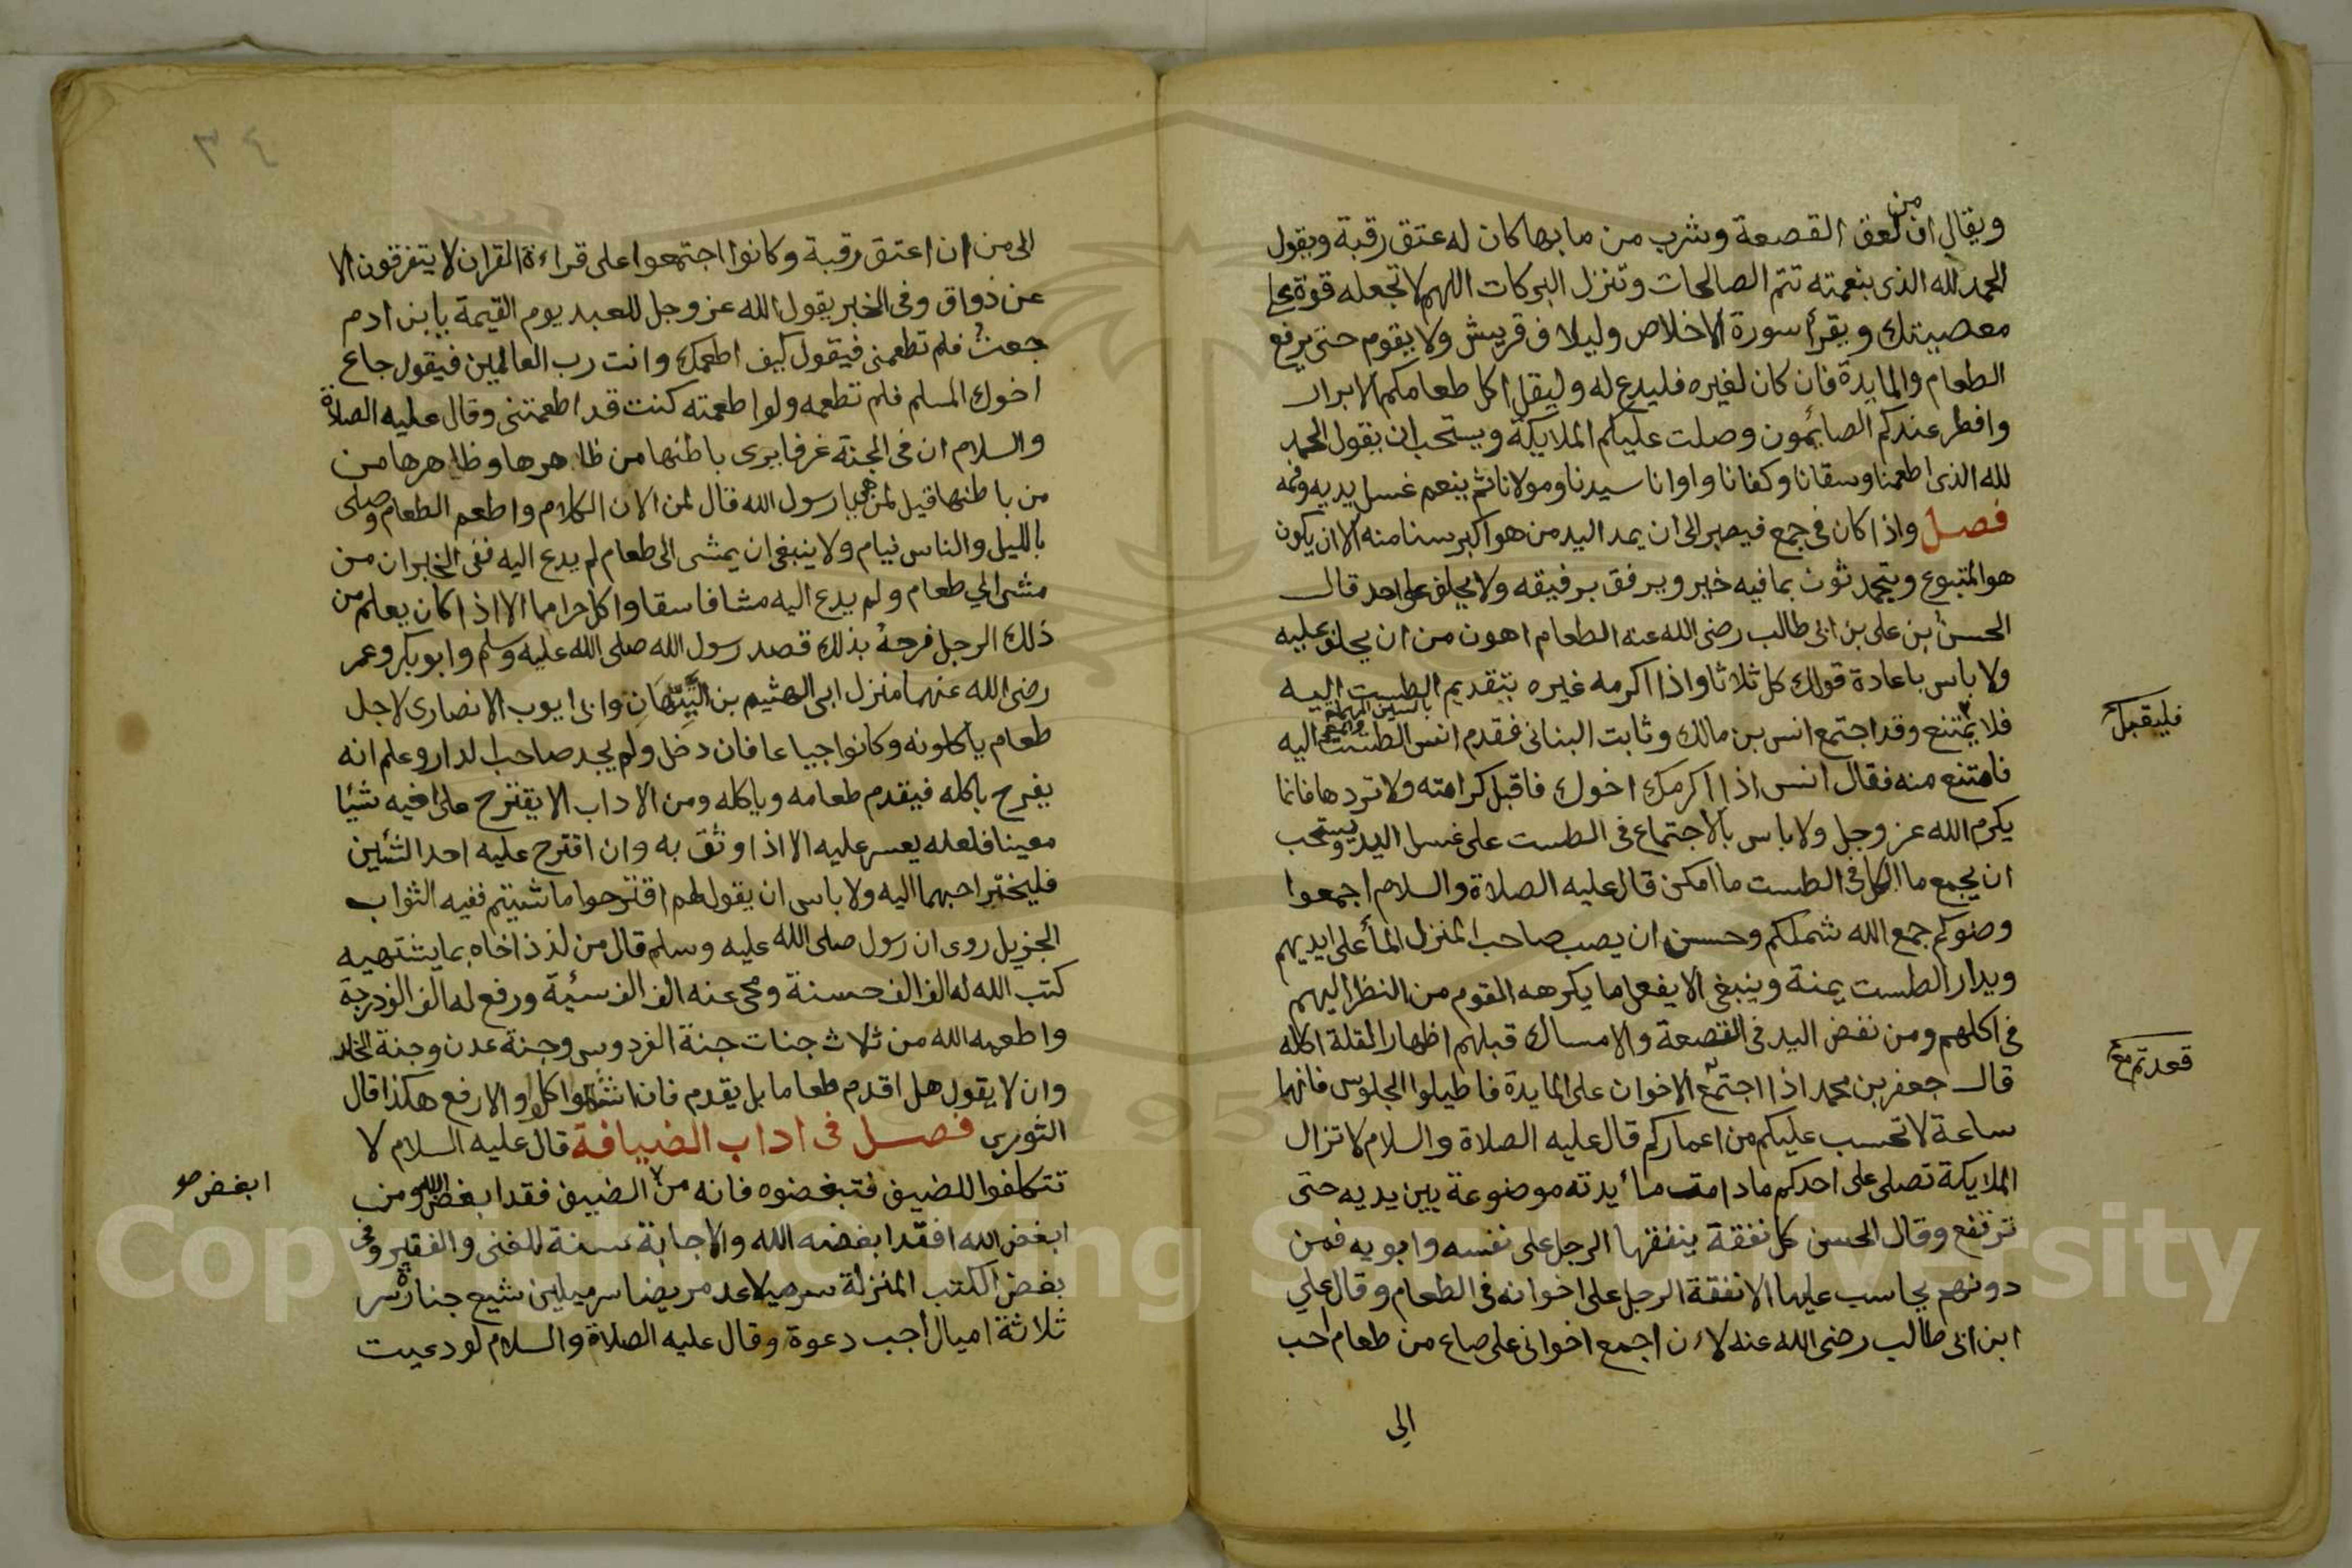 ويقال ان من لعق القصعة وشرب من مابها كان له عتق رقبة ويقول
الحمد لله الذى بنعمته تتم الصالحات وتنزل البركات اللهم لا تجعله قوة على
معصيتك ويقرأ سورة الاخلاص وليلاف قريش ولا يقوم حتى يرفع
الطعام والمايدة فان كان لغيره فليدع له وليقل اكل طعامكم الابرار
وافطر عندكم الصايمون وصلت عليكم الملايكة ويستحب ان يقول الحمد
لله الذى اطعمنا وسقانا وكفانا واوانا سيدنا ومولانا ثم ينعم غسل يديه وفمه
فصل واذا كان فى جمع فيصبر الى ان يمد اليد من هو اكبر سنا منه الا ان يكون
هو المتبوع ويتحدثون بما فيه خير ويرفق برفيقه ولا يحلف على احد قال
الحسن بن على بن ابى طالب رضى الله عنه الطعام اهون من ان يحلف عليه
ولا باس باعادة قولك كل ثلاثا واذا اكرمه غيره بتقديم الطست اليه
بالسين المهملة
فلا يمتنع وقد اجتمع انس بن مالك وثابت البنانى فقدم انس الطست اليه
فليقبل
فامتنع منه فقال انس اذا اكرمك اخوك فاقبل كرامته ولا تردها فانما
يكرم الله عز وجل ولا باس بالاجتماع فى الطست على غسل اليد ويستحب
ان يجمع ما الكل فى الطست ما امكن قال عليه الصلاة والسلام اجمعوا
وضوكم جمع الله شملكم وحسن ان يصب صاحب المنزل المأ على ايديهم
ويدار الطست يمنة وينبغى الا يفعل ما يكرهه القوم من النظر اليهم
فى اكلهم ومن نفض اليد فى القصعة والامساك قبلهم اظهارا لقلة اكله
قال جعفر بن محمد اذا اجتمع الاخوان على المايدة فاطيلوا الجلوس فانها
قعدتم مع
ساعة لا تحسب عليكم من اعماركم قال عليه الصلاة والسلام لا تزال
الملايكة تصلى على احدكم مادامت مأيدته موضوعة بين يديه حتى
ترتفع وقال الحسن كل نفقة ينفقها الرجل على نفسه وابويه فمن
دونهم يحاسب عليها الا نفقة الرجل على اخوانه فى الطعام وقال على
ابن ابى طالب رضى الله عنه لان اجمع اخوانى على صاع من طعام احب
الى
الى من ان اعتق رقبة وكانوا اجتمعوا على قراءة القران لا يتفرقون الا
عن ذواق وفى الخبر يقول الله عز وجل للعبد يوم القيمة يابن ادم
جعت فلم تطعمنى فيقول كيف اطعمك وانت رب العالمين فيقول جاع
اخوك المسلم فلم تطعمه ولو اطعمته كنت قد اطعمتنى وقال عليه الصلاة
والسلام ان فى الجنة غرفا يرى باطنها من ظاهرها وظاهرها من
من باطنها قيل لمن هى يا رسول الله قال لمن الان الكلام واطعم الطعام وصلى
بالليل والناس نيام ولا ينبغى ان يمشى الى طعام لم يدع اليه ففى الخبر ان من
مشى الى طعام ولم يدع اليه مشا فاسقا واكل حراما الا اذا كان يعلم من
ذلك الرجل فرحة بذلك قصد رسول الله صلى الله عليه وسلم وابو بكر وعمر
رضى الله عنهما منزل ابى الهثيم بن التيهان وابى ايوب الانصارى لاجل
طعام ياكلونه وكانوا جياعا فان دخل ولم يجد صاحب الدار وعلم انه
يفرح باكله فيقدم طعامه وياكله ومن الاداب الا يقترح على اخيه شيئا
معينا فلعله يعسر عليه الا اذا وثق به وان اقترح عليه احد الشئين
فليختر احبهما اليه ولا باس ان يقول لهم اقترحوا ما شيتم ففيه الثواب
الجزيل روى ان رسول صلى الله عليه وسلم قال من لذذ اخاه بما يشتهيه
كتب الله له الف الف حسنة ومحى عنه الف الف سئية ورفع له الف الف درجة
واطعمه الله من ثلاث جنات جنة الفردوس وجنة عدن وجنة الخلد
وان لا يقول هل اقدم طعاما بل يقدم فان اشتهوا اكلوا والا رفع هكذا قال
الثورى فصل فى اداب الضيافة قال عليه السلام لا
تتكلفوا للضيف فتبغضوه فانه من الضيف فقد ابغض الله ومن
ابغض صح
ابغض الله فقد ابغضه الله والاجابة سنة للغنى والفقير وفى
بعض الكتب المنزلة سر ميلا عد مريضا سر ميلين شيع جنازة سر
ثلاثة اميال اجب دعوة وقال عليه الصلاة والسلام لو دعيت
Copyright © King Saud University
1957